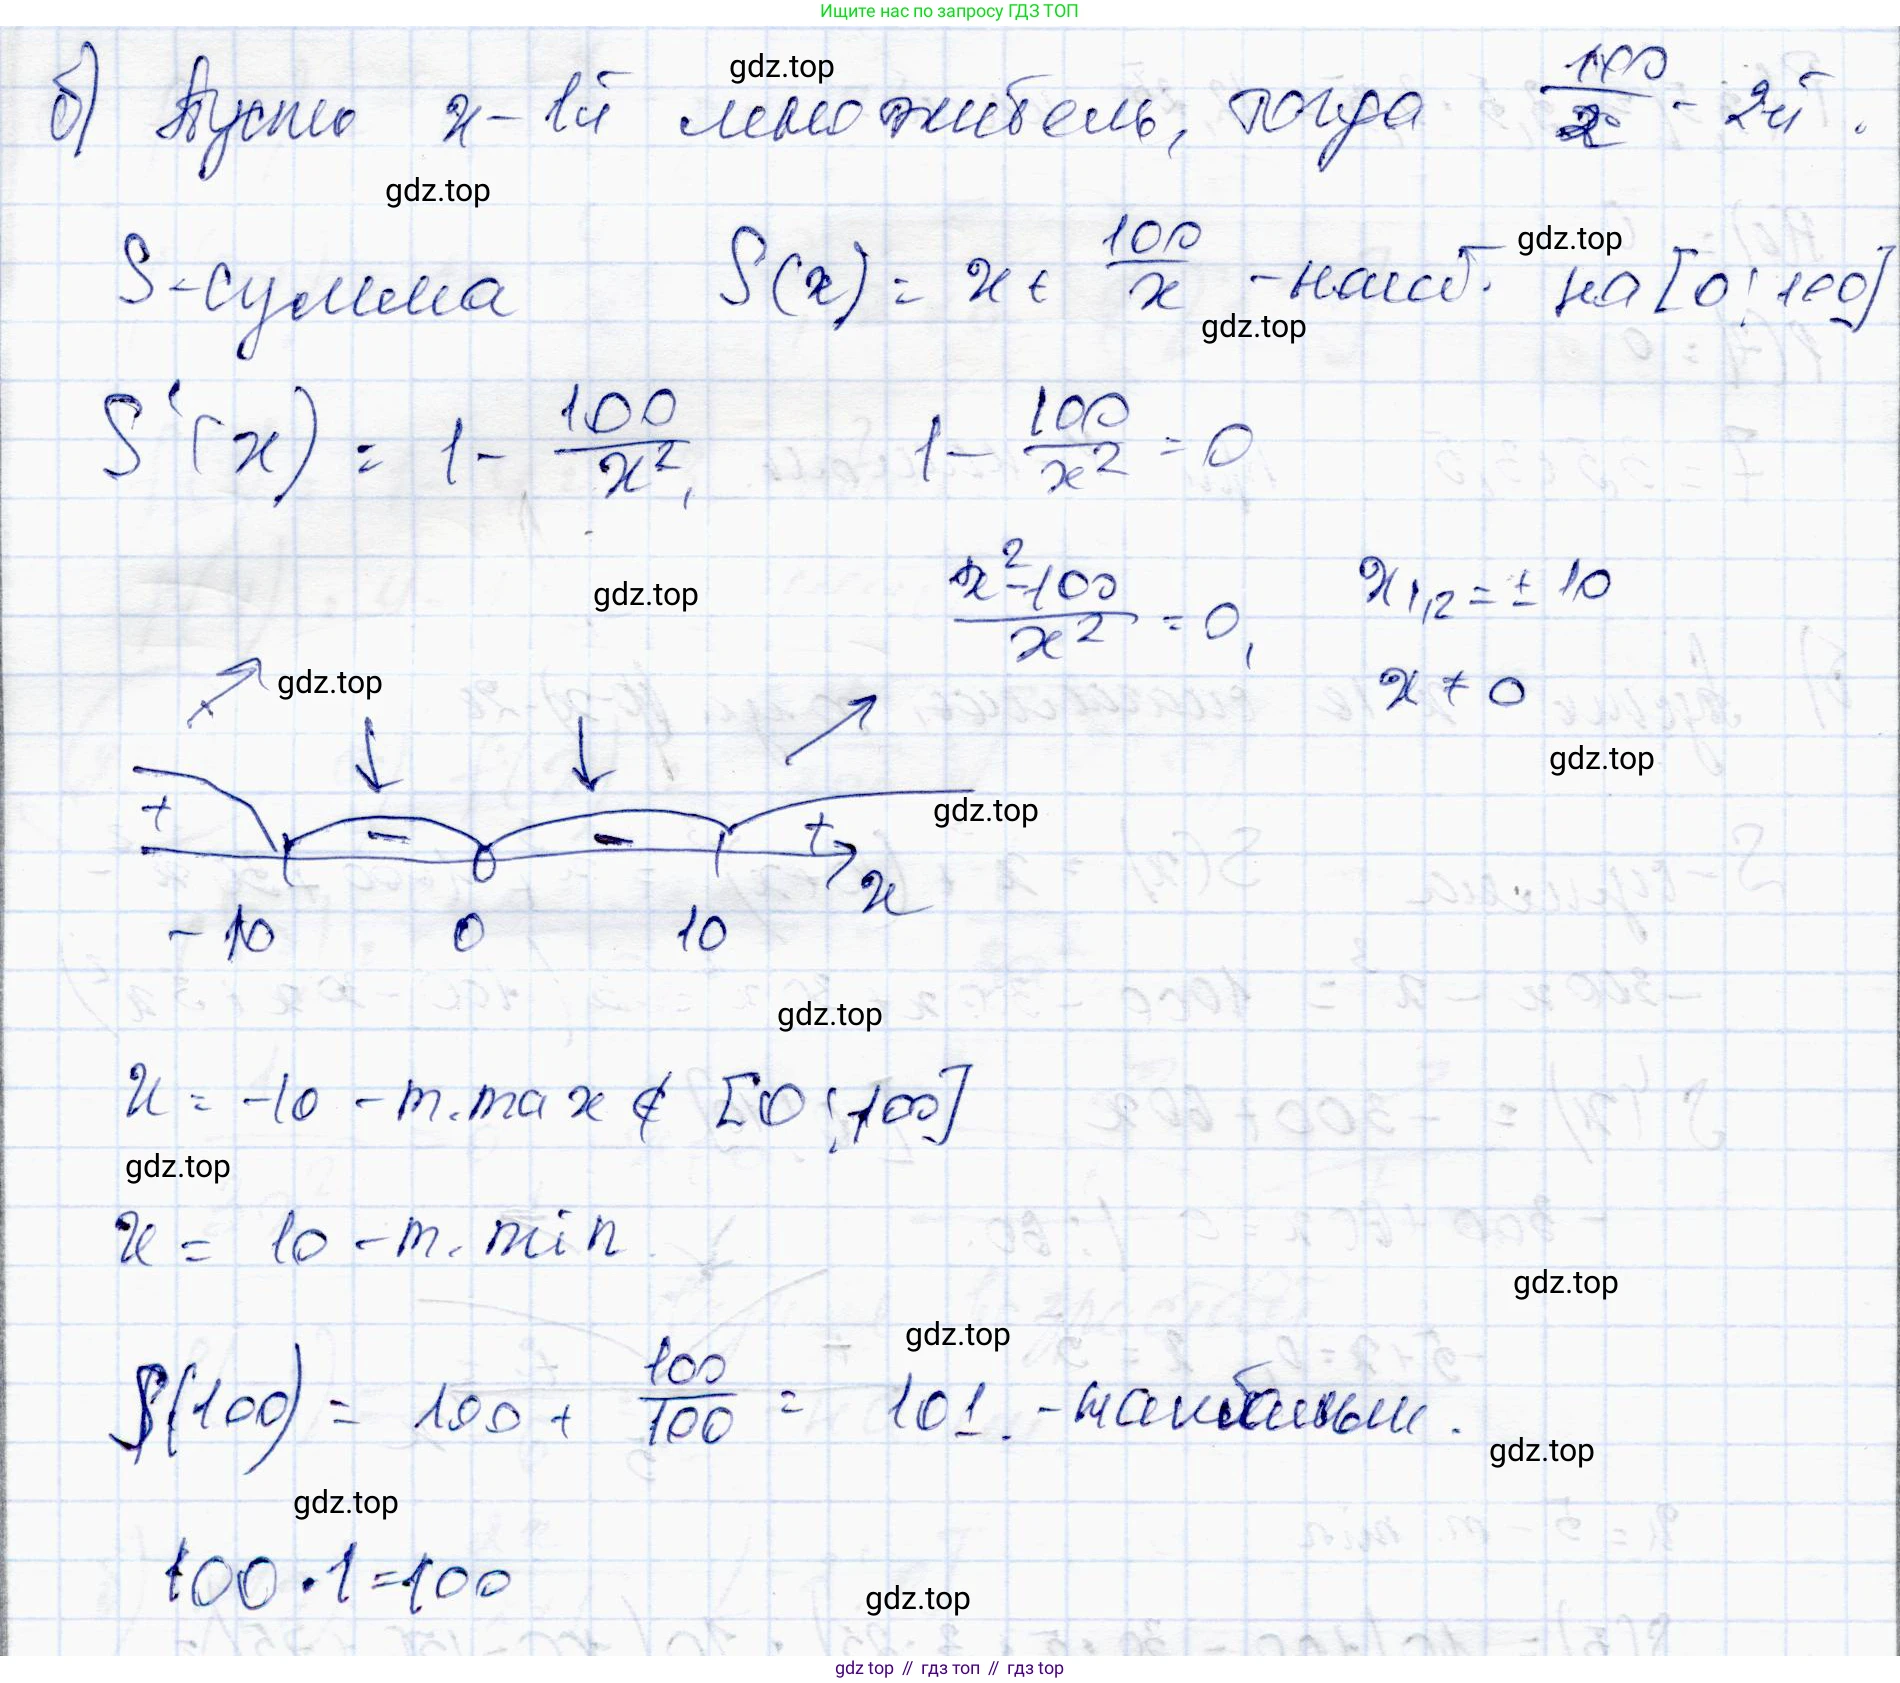 Ищите нас по запросу ГДЗ ТОП
б) Пусть x - 1й множитель, тогда 100/x - 2й.
gdz.top
gdz.top
S - сумма S(x) = x + 100/x - наиб. на [0; 100]
gdz.top
gdz.top
S'(x) = 1 - 100/x², 1 - 100/x² = 0
(x² - 100)/x² = 0, x1,2 = ± 10
gdz.top
x ≠ 0
gdz.top
gdz.top
+ - - + x
gdz.top
-10 0 10
gdz.top
x = -10 - т. max ∉ [0; 100]
gdz.top
x = 10 - т. min
gdz.top
gdz.top
S(100) = 100 + 100/100 = 101. - наибольш.
gdz.top
gdz.top
100 · 1 = 100
gdz.top
gdz top // гдз топ // гдз top